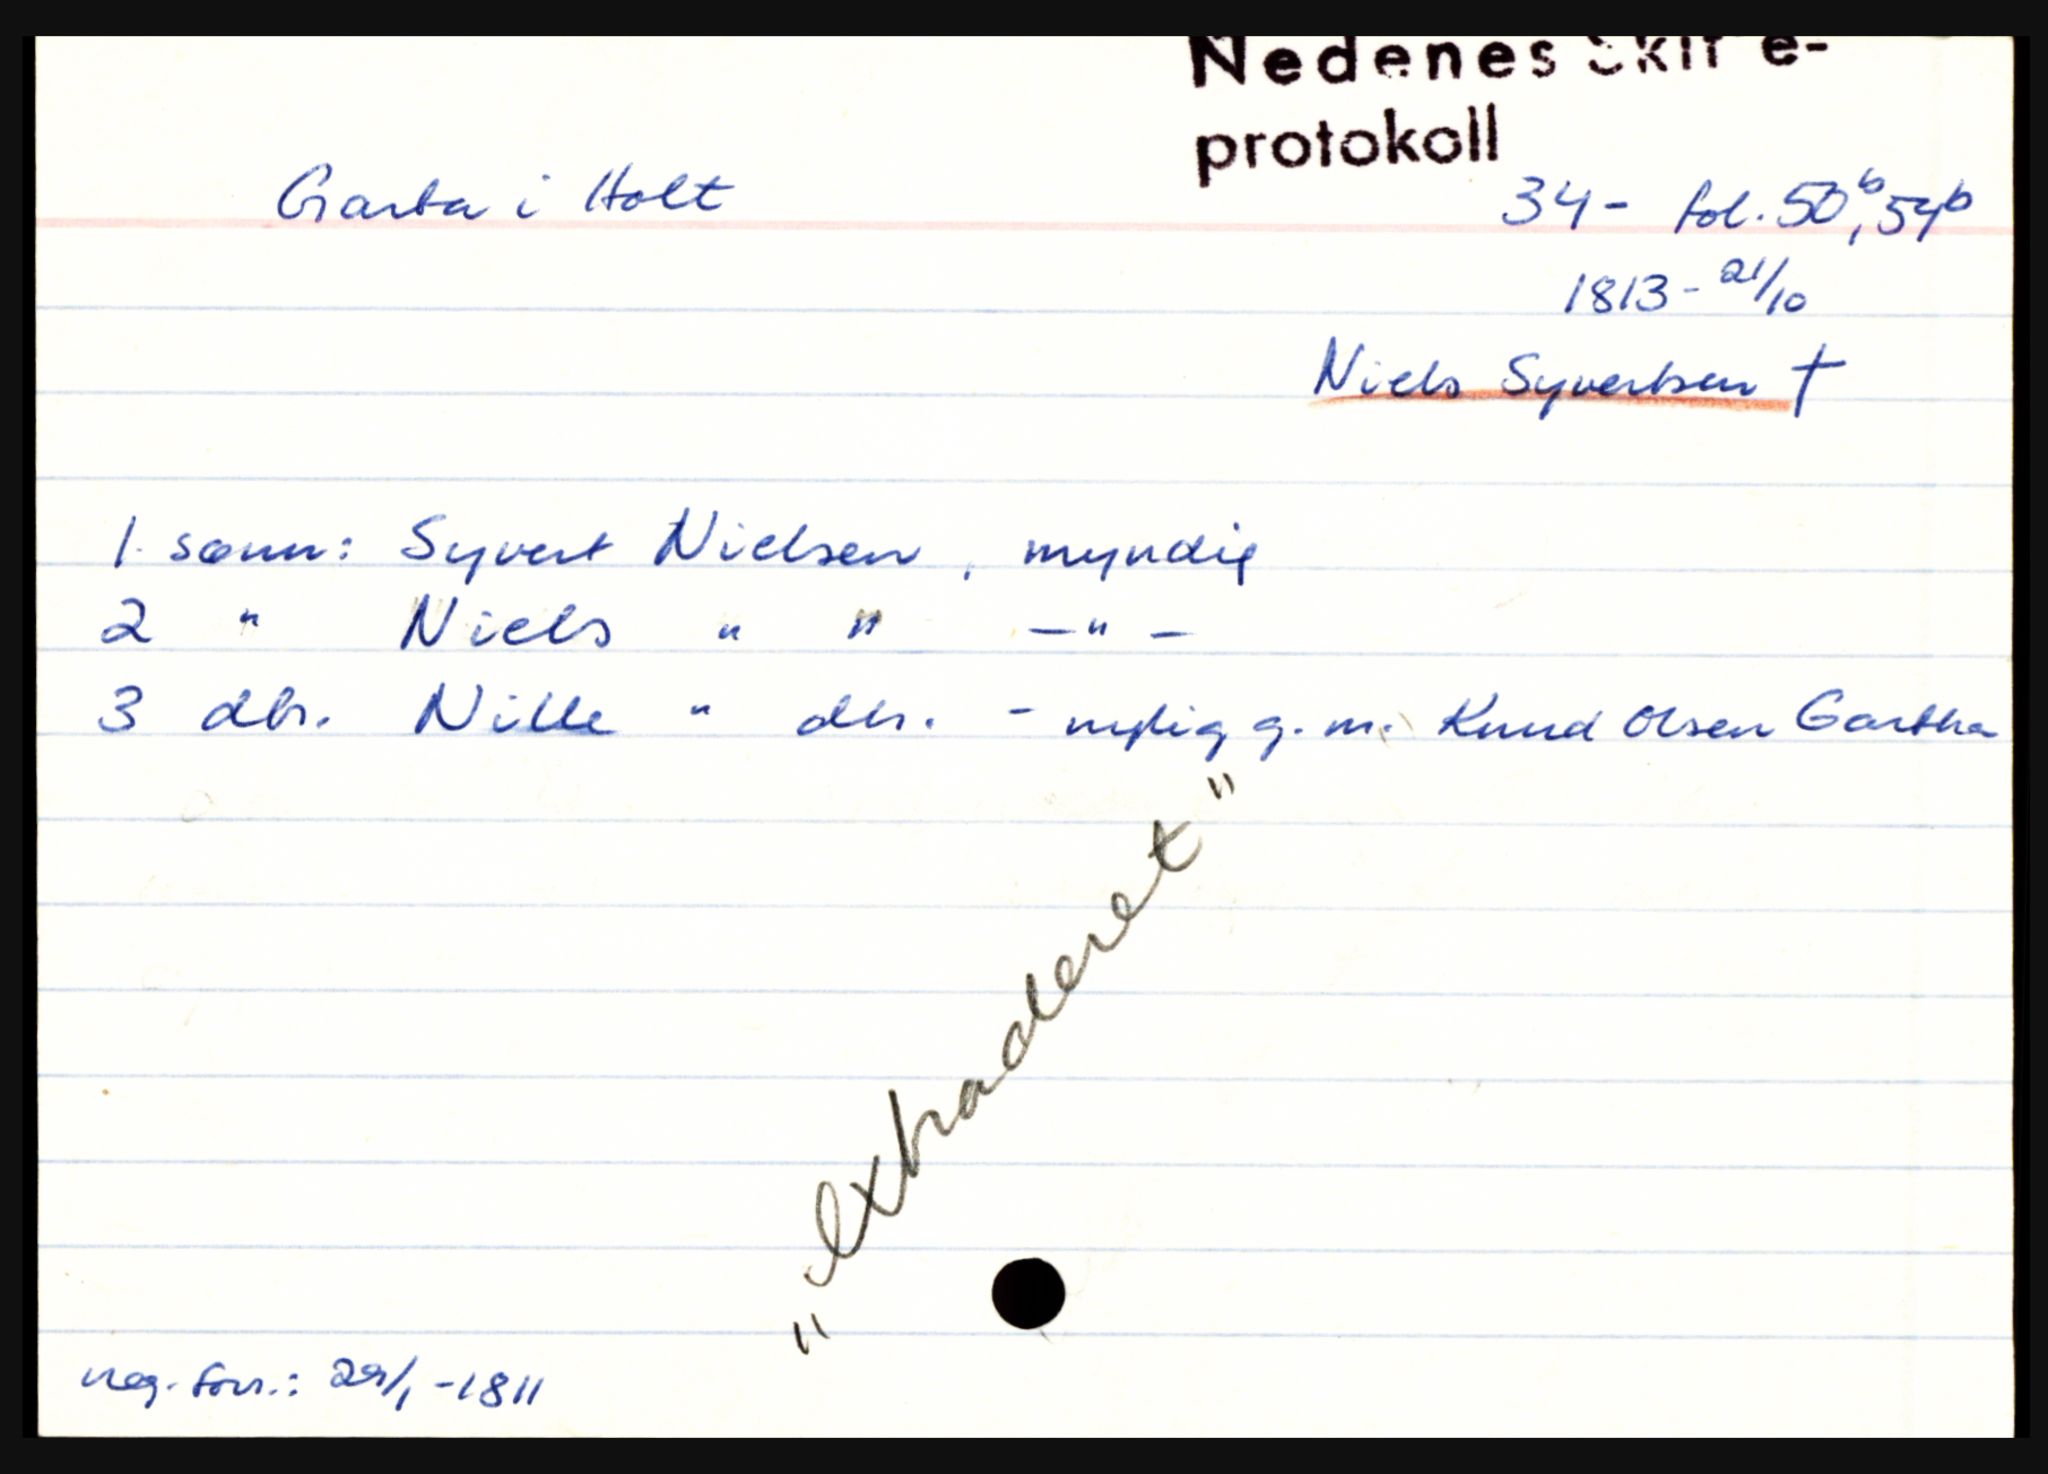 Nedenes Skifte-
protokoll
Garta i Holt
34- fol. 50b, 54b
1813 - 21/10
Niels Syvertsen †
1. sønn: Syvert Nielsen, myndig
2 " Niels " " -"-
3 dtr. Nille " dtr. - mydig g. m. Knud Olsen Gartha
"extraderet"
reg. forr.: 29/1 -1811